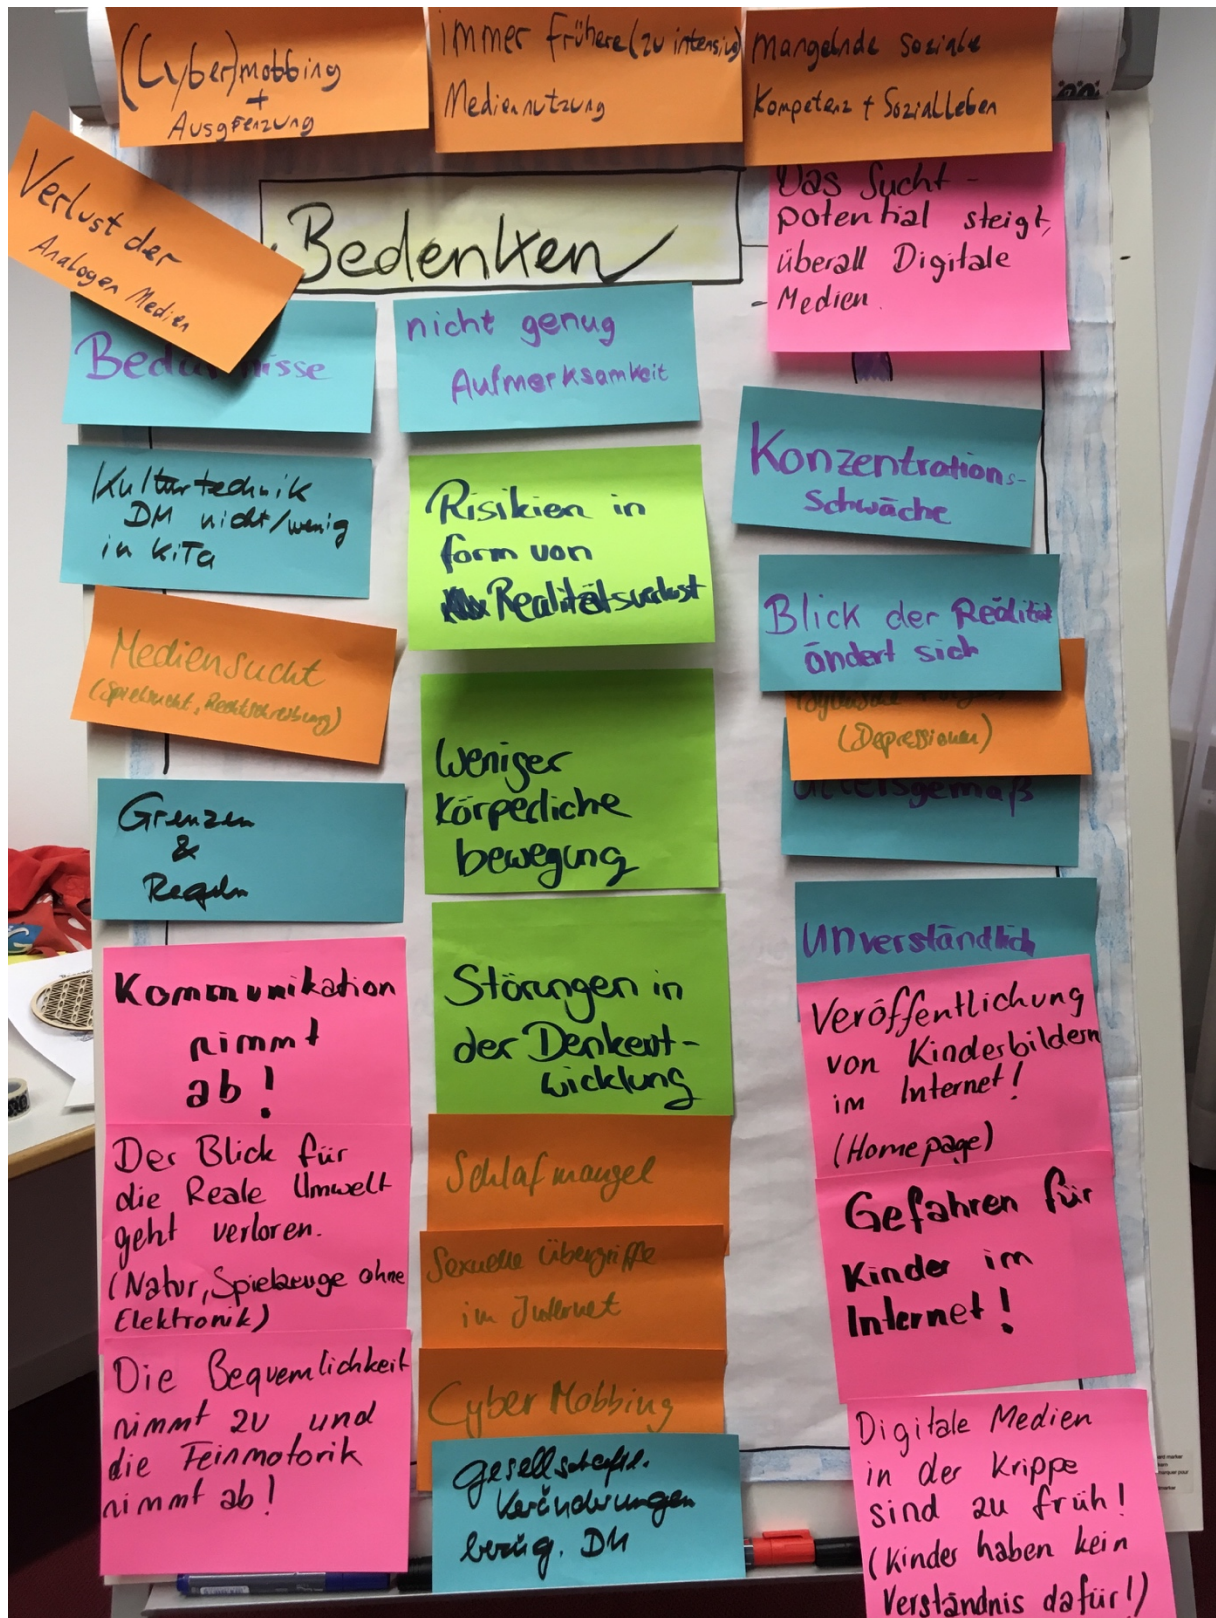 (Cyber)mobbing
+
Ausgrenzung
immer frühere (zu intensive)
Mediennutzung
mangelnde soziale
Kompetenz + Sozialleben
Verlust der
Analogen Medien
Bedenken
Das Sucht-
potential steigt,
überall Digitale
Medien.
nicht genug
Aufmerksamkeit
Konzentrations-
schwäche
Kulturtechnik
DM nicht/wenig
in KiTa
Risikien in
form von
Realitätsverlust
Blick der Realität
ändert sich
Mediensucht
(Spielsucht, Rechtschreibung)
(Depressionen)
Weniger
körperliche
bewegung
Grenzen
&
Regeln
Unverständlich
Kommunikation
nimmt
ab!
Störungen in
der Denkent-
wicklung
Veröffentlichung
von Kinderbildern
im Internet!
(Homepage)
Der Blick für
die Reale Umwelt
geht verloren.
(Natur, Spielzeuge ohne
Elektronik)
Schlafmangel
Sexuelle Übergriffe
im Internet
Gefahren für
Kinder im
Internet!
Die Bequemlichkeit
nimmt zu und
die Feinmotorik
nimmt ab!
Cyber Mobbing
gesellschaftl.
Veränderungen
bezüg. DM
Digitale Medien
in der Krippe
sind zu früh!
(Kinder haben kein
Verständnis dafür!)